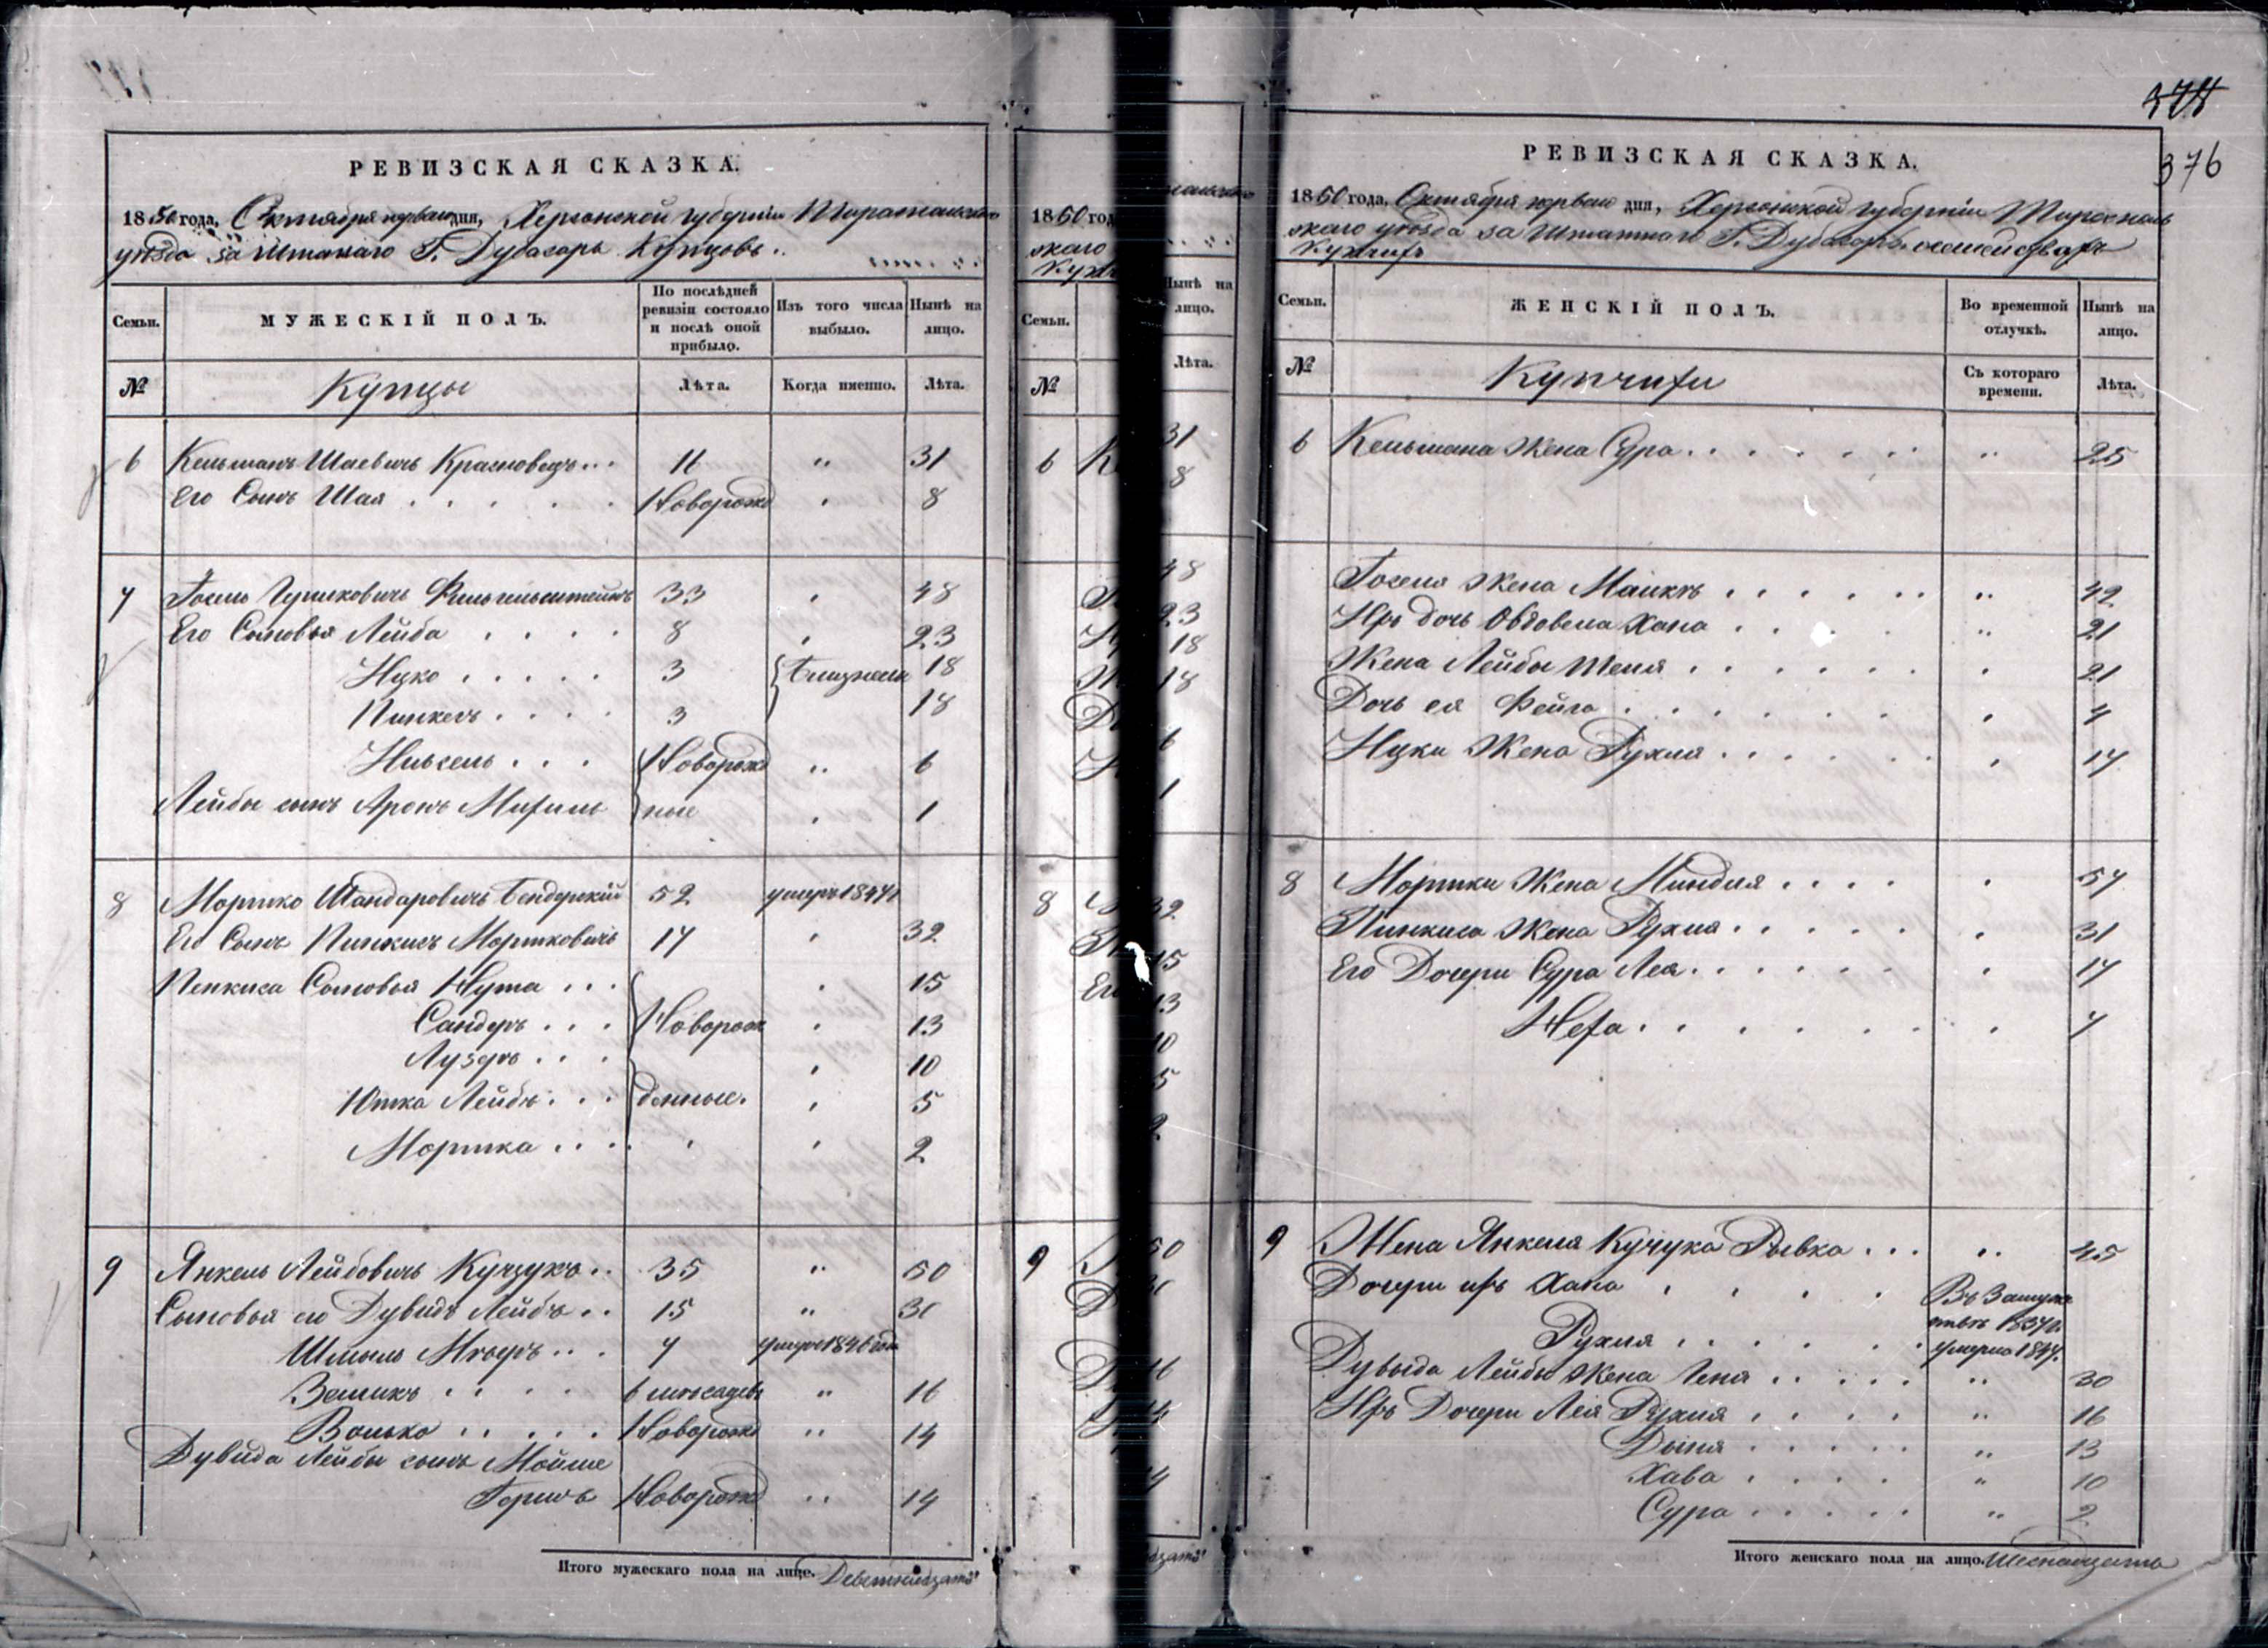 РЕВИЗСКАЯ СКАЗКА.
1850 года, Октября перваго дня, Херсонской губерніи Тираспольскаго
уѣзда за Штатнаго Г. Дубасаръ Купцовъ.
Семьи.
МУЖЕСКІЙ ПОЛЪ.
По послѣдней ревизіи состояло и послѣ оной прибыло.
Изъ того числа выбыло.
Нынѣ на лицо.
№
Купцы
Лѣта.
Когда именно.
Лѣта.
6 Кельманъ Шаевичъ 16 " 31
Его Сынъ Шая Новорожд " 8
7 Іосель Финкельштейнъ 33 " 48
Его Сыновья Лейба 8 " 23
Ицко 3 близнецы 18
Пинкесъ 3 18
Новорожд " 6
Лейбы сынъ Аронъ ные " 1
8 Моршко Шандаровичъ Бендерскій 52 умеръ 1847
Его Сынъ Пинкисъ Моршковичъ 17 " 32
Пинкиса Сыновья Нута " 15
Сандеръ Новорож " 13
Лузеръ " 10
Юшка Лейбъ денные. " 5
Моршка " " 2
9 Янкель Лейбовичъ Кучукъ 35 " 50
Сыновья его Дувидъ Лейбъ 15 " 30
Шмыль 7 умеръ 1846 года
Зелманъ 6 мѣсяцевъ " 16
Волько Новорожд " 14
Дувида Лейбы сынъ Мойше
Гершъ Новорожд " 14
Итого мужескаго пола на лице. Девятнадцать
1850 год
скаго
Семьи.
№
6
8
9
Нынѣ на
лицо.
Лѣта.
374
376
РЕВИЗСКАЯ СКАЗКА.
1850 года, Октября перваго дня, Херсонской губерніи Тирасполь
скаго уѣзда за Штатнаго Г. Дубасаръ
Купчихъ
Семьи.
ЖЕНСКІЙ ПОЛЪ.
Во временной отлучкѣ.
Нынѣ на лицо.
№
Купчихи
Съ котораго времени.
Лѣта.
6 Кельмана Жена Сура " 25
Іоселя Жена " 42
Ихъ дочь Овдовела Хана " 21
Жена Лейбы Шейля " 21
Дочь ея Фейга " 4
Ицки Жена Рухля " 17
8 Моршки Жена Миндля " 54
Пинкиса Жена Рухля " 31
Его Дочери Сура Лея " 14
Неха " 7
9 Жена Янкеля Кучука Рывка " 45
Дочери ихъ Хана Въ Замуже
ствѣ 1837 г.
Рухля умерла 1847.
Дувыда Лейбы Жена Геня " 30
Ихъ Дочери Лея Рухля " 16
Дыня " 13
Хава " 10
Сура " 2
Итого женскаго пола на лицо. Шеснадцать